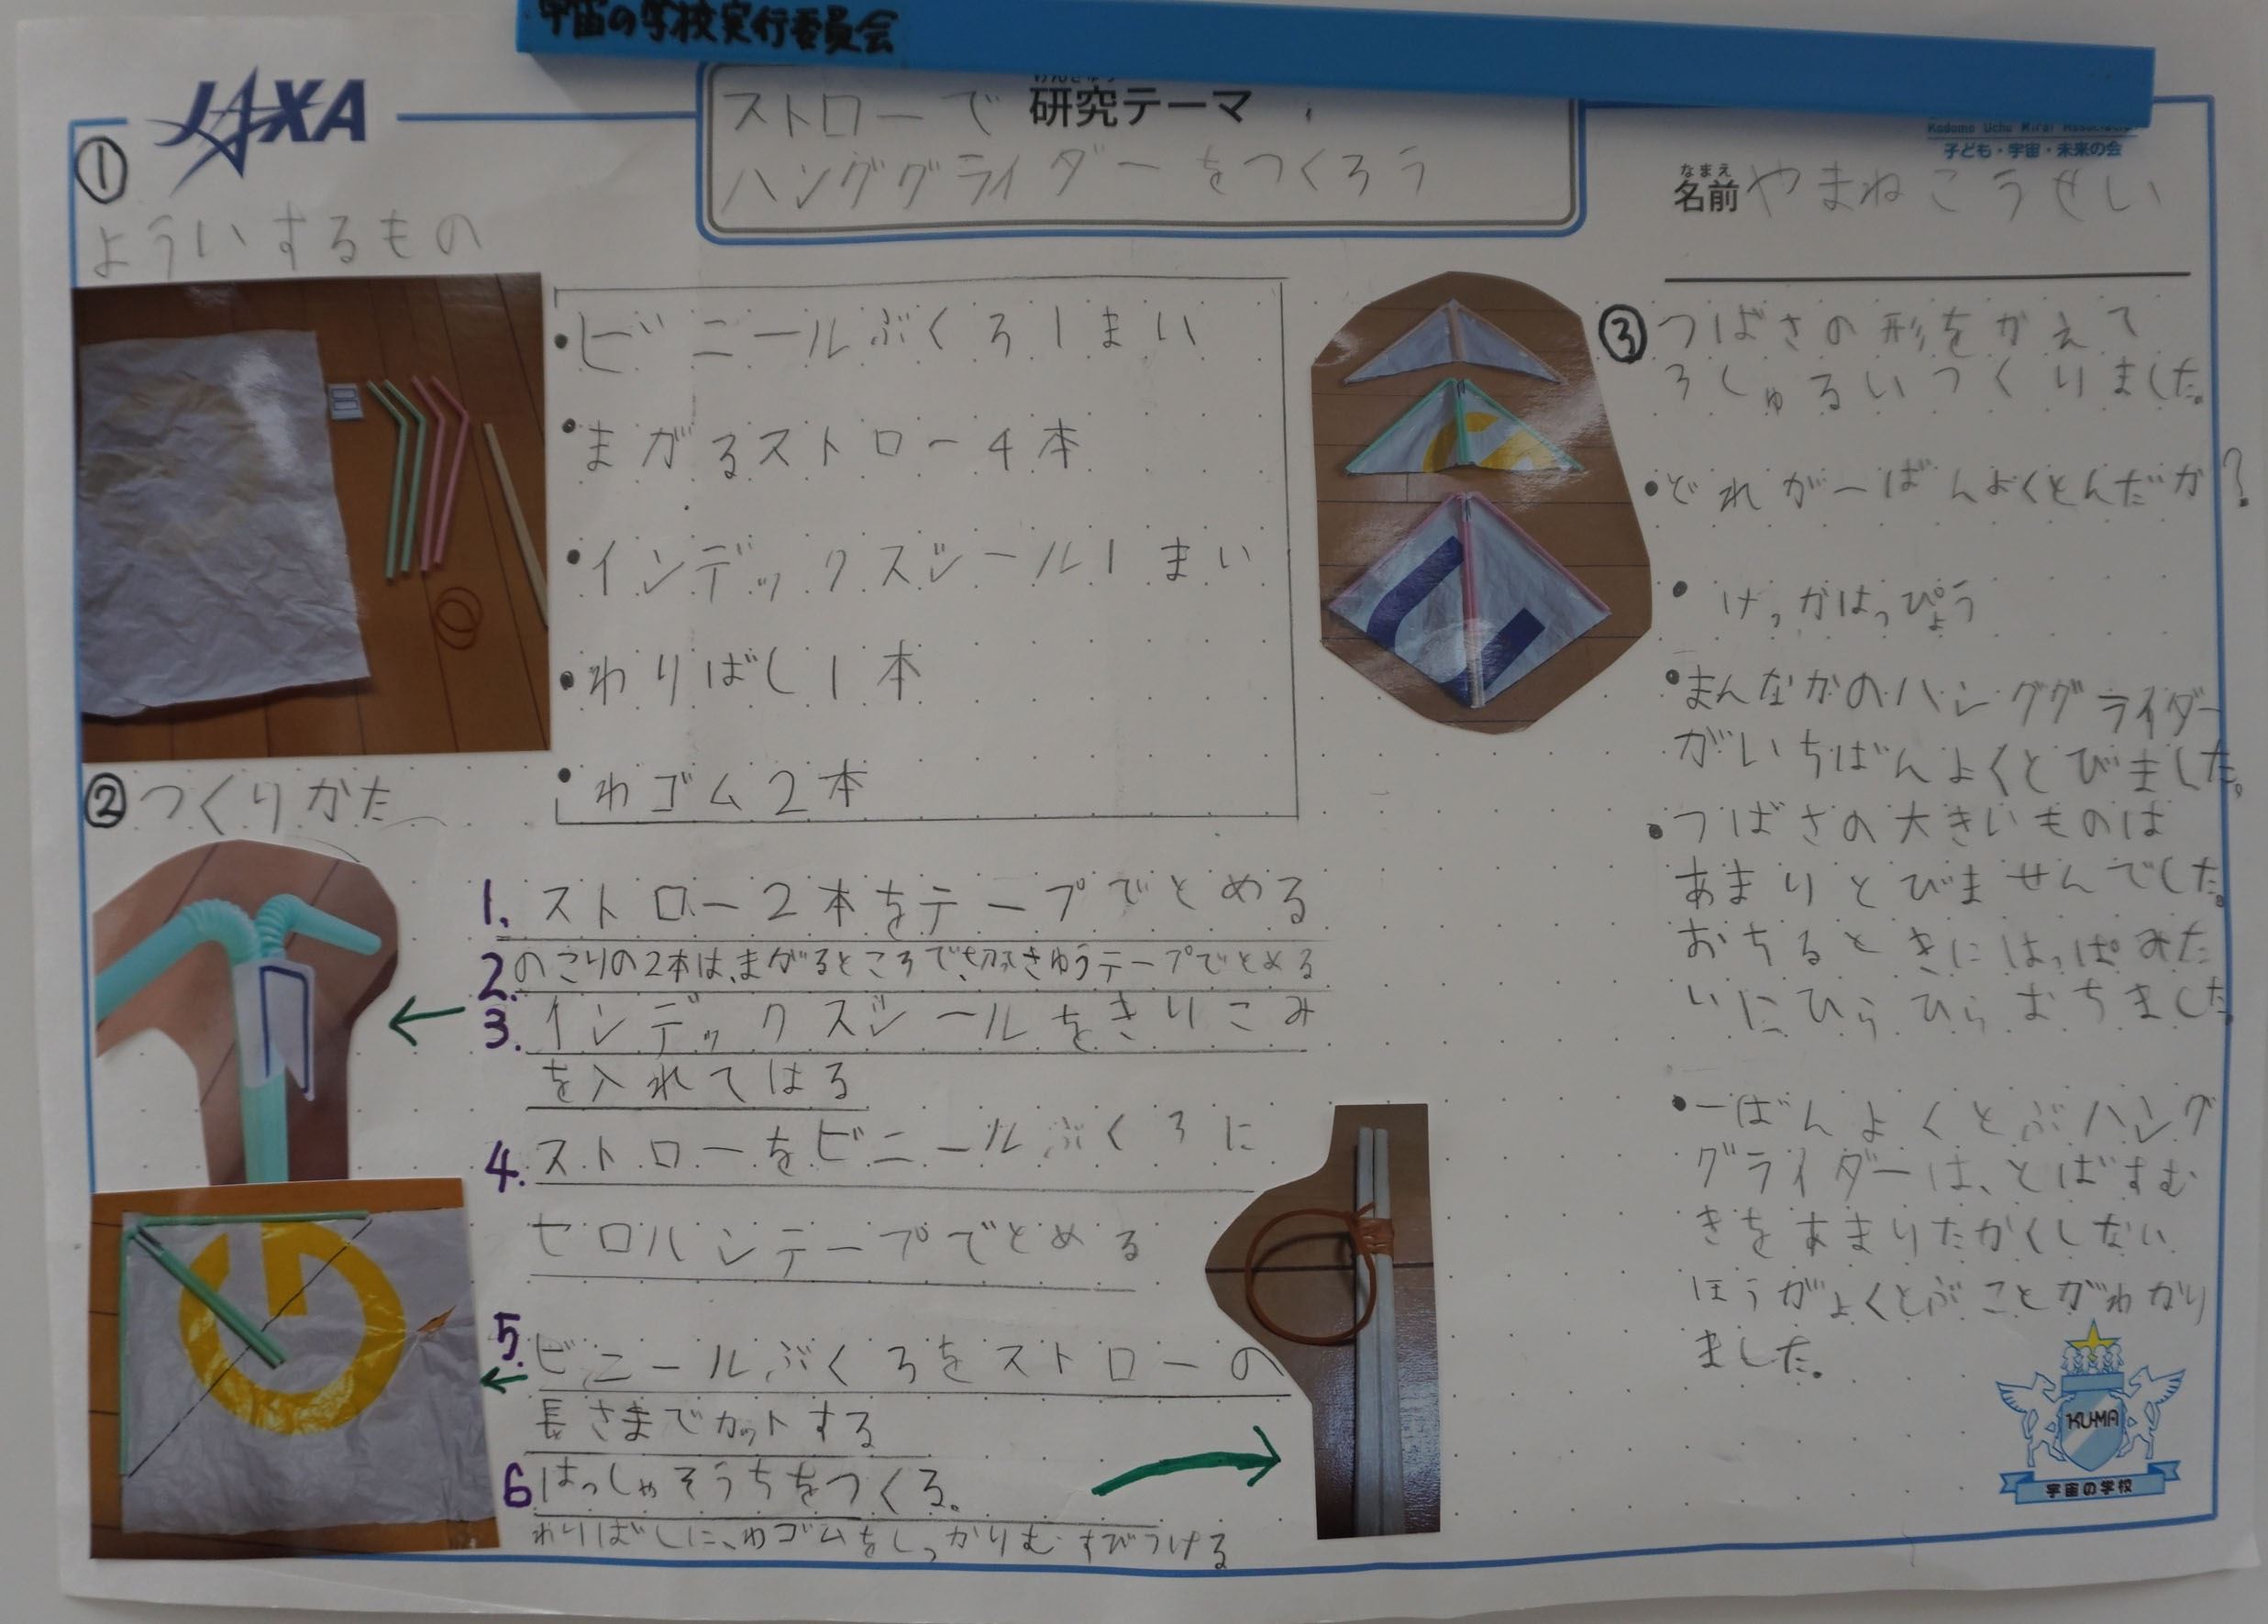 宇宙の学校実行委員会
JAXA
研究テーマ
ストローで
ハンググライダーをつくろう
子ども・宇宙・未来の会
なまえ
名前 やまねこうせい
①
よういするもの
・ビニールぶくろ1まい
・まがるストロー4本
・インデックスシール1まい
・わりばし1本
・わゴム2本
②つくりかた
1. ストロー2本をテープでとめる
2. のこりの2本は、まがるところで切きゅうテープでとめる
3. インデックスシールをきりこみ
を入れてはる
4. ストローをビニールぶくろに
セロハンテープでとめる
5. ビニールぶくろをストローの
長さまでカットする
6 はっしゃそうちをつくる。
わりばしに、わゴムをしっかりむすびつける
③つばさの形をかえて
3しゅるいつくりました。
・どれが一ばんよくとんだか?
・けっかはっぴょう
・まんなかのハンググライダー
がいちばんよくとびました。
・つばさの大きいものは
あまりとびませんでした。
おちるときにはっぱみた
いにひらひらおちました。
・一ばんよくとぶハング
グライダーは、とばすむ
きをあまりたかくしない
ほうがよくとぶことがわかり
ました。
KU-MA
宇宙の学校